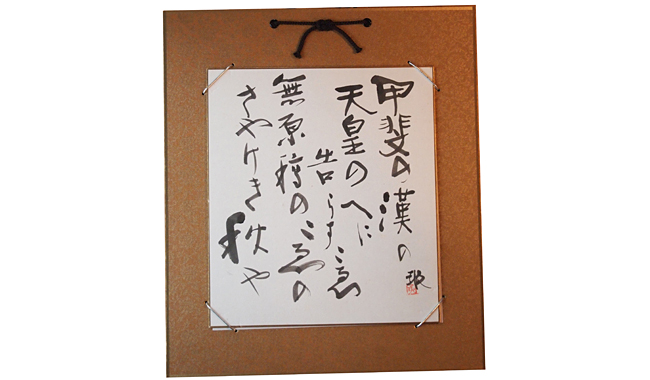 甲斐の漢の
天皇のへに
告らすこゑ
無原稿のこゑの
さやけき秋や